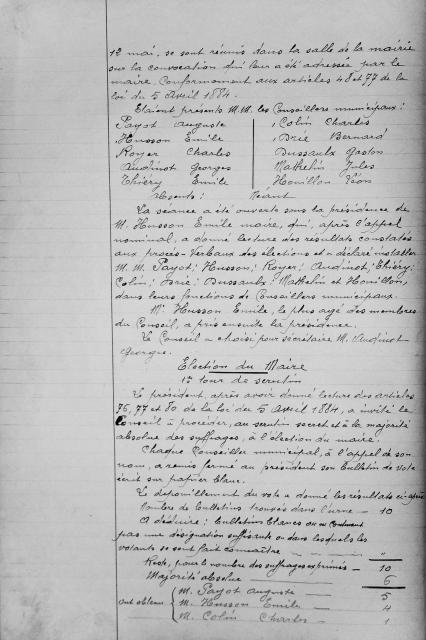 12 mai, se sont réunis dans la salle de la mairie
sur la convocation qui leur a été adressée par le
maire. Conformément aux articles 48 et 77 de la
loi du 5 avril 1884.
Etaient présents M.M. les Conseillers municipaux :
Payot Auguste , Colin Charles
Husson Emile , Drié Bernard
Royer Charles Dussaulx Gaston
Audinot Georges Mathelin Jules
Thiéry Emile Houillon Léon
Absents : Néant
La séance a été ouverte sous la présidence de
M. Husson Emile maire, qui, après l'appel
nominal, a donné lecture des résultats constatés
aux procès-Verbaux des élections et a déclaré installer
M.M. Payot ; Husson ; Royer ; Audinot ; Thiéry ;
Colin ; Drié ; Dussaulx ; Mathelin et Houillon,
dans leurs fonctions de Conseillers municipaux.
Mr Husson Emile, le plus agé des membres
du Conseil, a pris ensuite la présidence.
Le Conseil a choisi pour secrétaire M. Audinot
Georges.
Election du Maire
1er tour de scrutin
Le président, après avoir donné lecture des articles
76, 77 et 80 de la loi du 5 avril 1884, a invité le
Conseil à procéder, au scrutin secret et à la majorité
absolue des suffrages, à l'élection du maire.
Chaque Conseiller municipal, à l'appel de son
nom, a remis fermé au président son bulletin de vote
écrit sur papier blanc.
Le dépouillement du vote a donné les résultats ci-après
Nombre de bulletins trouvés dans l'urne — 10
A déduire : bulletins blancs ou ne contenant
pas une désignation suffisante ou dans lesquels les
votants se sont fait connaître "
Reste, pour le nombre des suffrages exprimés — 10
Majorité absolue — 6
M. Payot Auguste — 5
Ont obtenu { M. Husson Emile — 4
M. Colin Charles — 1